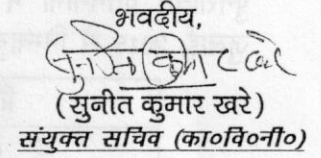 भवदीय,
सुनीत कुमार खरे
(सुनीत कुमार खरे)
संयुक्त सचिव (का०वि०नी०)